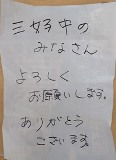 三好中の
みなさん
よろしく
お願いします。
ありがとう
ございます